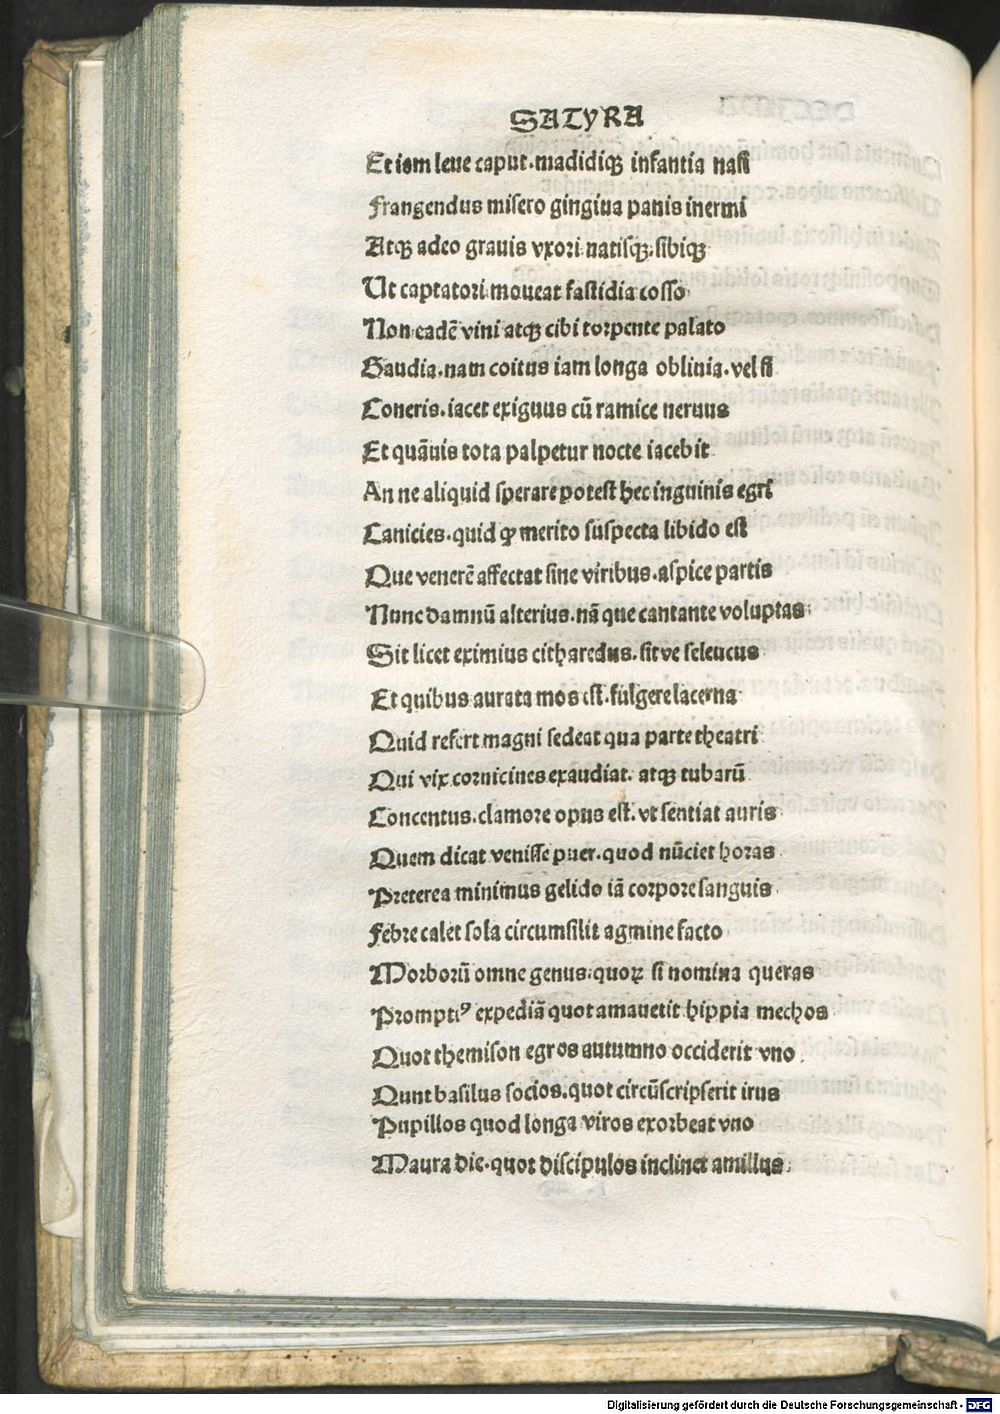 SATYRA
Et iam leue caput.madidiqꝫ infantia nasi
Frangendus misero gingiua panis inermi
Atqꝫ adeo grauis vxori natisqꝫ.sibiqꝫ
Ut captatori moueat fastidia cosso
Non eadē vini atqꝫ cibi torpente palato
Gaudia.nam coitus iam longa obliuia.vel si
Coneris.iacet exiguus cū ramice neruus
Et quāuis tota palpetur nocte iacebit
An ne aliquid sperare potest hec inguinis egri
Canicies.quid ꝙ merito suspecta libido est
Que venerē affectat sine viribus.aspice partis
Nunc damnū alterius.nā que cantante voluptas
Sit licet eximius citharedus.sit ve seleucus
Et quibus aurata mos est.fulgere lacerna
Quid refert magni sedeat qua parte theatri
Qui vix cornicines exaudiat. atqꝫ tubarū
Concentus.clamore opus est.vt sentiat auris
Quem dicat venisse puer.quod nūciet horas
Preterea minimus gelido iā corpore sanguis
Febre calet sola circumsilit agmine facto
Morborū omne genus.quoꝝ si nomina queras
Promptiꝰ expediā quot amauetit hippia mechos
Quot themison egros autumno occiderit vno
Qunt basilus socios.quot circūscripserit irus
Pupillos quod longa viros exorbeat vno
Maura die.quot discipulos inclinet amillus
Digitalisierung gefördert durch die Deutsche Forschungsgemeinschaft - DFG